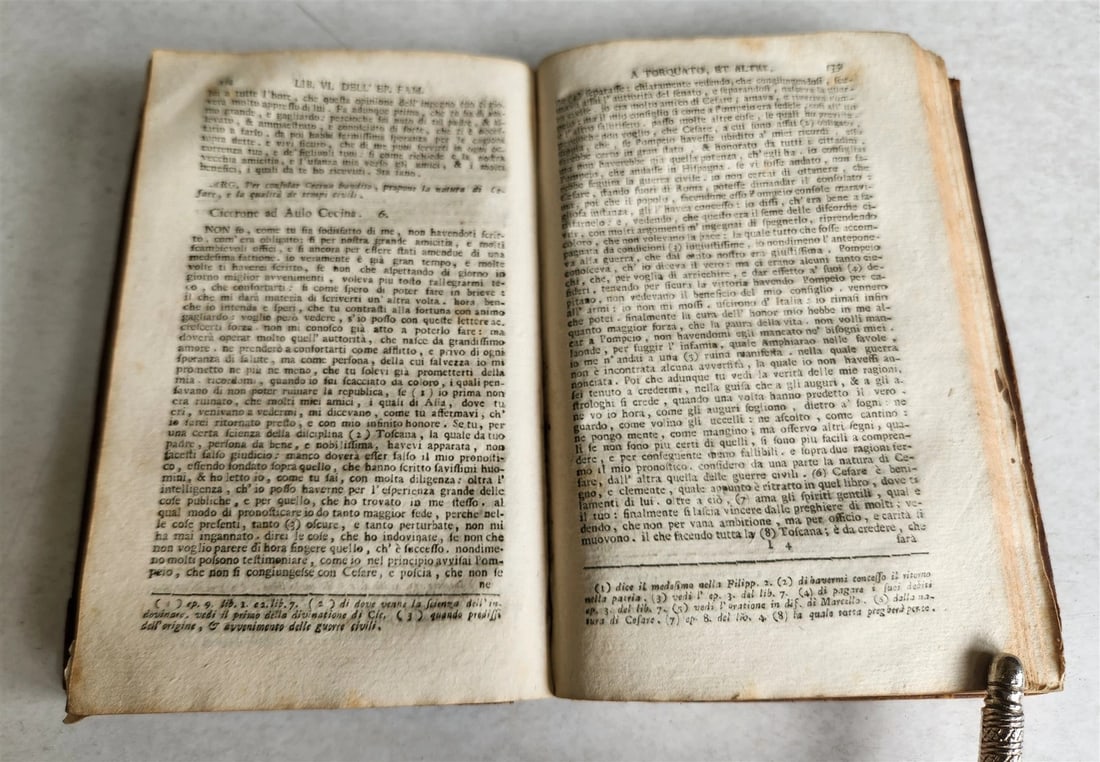 LIB. VI. DELL' EP. FAM.
ga a tutte l'hore, che questa opinione dell'ingegno tuo ti gio-
verà molto appresso di lui. Fa adunque prima, che tu sia di
mo grande, e gagliardo: percioche sei nato di tal padre, & al-
levato, & ammaestrato, e conosciuto di forte, che ti è neces-
sario a farlo, da poi habbi fermissima speranza per le cagioni
sopra dette. e vivi sicuro, che di me puoi servirti in ogni oc-
correnza tua, e de' figliuoli tuoi: sì come richiede e la nostra
vecchia amicitia, e l'usanza mia verso gli amici, & i molti
benefici, i quali da te ho ricevuti. Sta sano.
ARG. Per consolar Cecina bandito, propone la natura di Ce-
sare, e la qualità de tempi civili.
Cicerone ad Aulo Cecina. 6.
NON so, come tu sia sodisfatto di me, non havendoti scrit-
to, com'era obligato: sì per nostra grande amicitia, e molti
scambievoli offici, e sì ancora per essere stati amendue di una
medesima fattione. io veramente è già gran tempo, e molte
volte ti haverei scritto, se non che aspettando di giorno in
giorno miglior avvenimenti, voleva più tosto rallegrarmi te-
co, che confortarti: sì come spero di poter fare in brieve:
il che mi darà materia di scriverti un' altra volta. hora, ben-
che io intenda e speri, che tu contrasti alla fortuna con animo
gagliardo: voglio però vedere, s'io posso con queste lettere ac-
crescerti forza. non mi conosco già atto a poterlo fare: ma
doverà operar molto quell' autorità, che nasce da grandissimo
amore. ne prenderò a confortarti come afflitto, e privo di ogni
speranza di salute, ma come persona, della cui salvezza io mi
prometto ne più ne meno, che tu solevi già prometterti della
mia. ricordomi, quando io fui scacciato da coloro, i quali pen-
savano di non poter ruinare la republica, se (1) io prima non
era ruinato, che molti miei amici, i quali di Asia, dove tu
eri, venivano a vedermi, mi dicevano, come tu affermavi, ch'
io sarei ritornato presto, e con mio infinito honore. Se tu, per
una certa scienza della disciplina (2) Toscana, la quale da tuo
padre, persona da bene, e nobilissima, havevi apparata, non
facesti falso giudicio: manco doverà esser falso il mio pronosti-
co, essendo fondato sopra quello, che hanno scritto savissimi huo-
mini, & ho letto io, come tu sai, con molta diligenza: oltra l'
intelligenza, ch' io posso haverne per l'esperienza grande delle
cose publiche, e per quello, che ho trovato in me stesso. al
qual modo di pronosticare io do tanto maggior fede, perche nel-
le cose presenti, tanto (3) oscure, e tanto perturbate, non mi
ha mai ingannato. direi le cose, che ho indovinate, se non che
non voglio parere di hora fingere quello, ch' è successo. nondime-
no molti possono testimoniare, come io nel principio avvisai Pom-
peio, che non si congiungesse con Cesare, e poscia, che non se
ne
(1) ep. 9. lib. 1. e 2. lib. 7. (2) di dove venne la scienza dell' in-
dovinare. vedi il primo della divinatione di Cic. (3) quando predisse
dell'origine, & avvenimento delle guerre civili.
A TORQUATO, ET ALTRI.
separasse: chiaramente vedendo, che congiungendosi, sce-
l' autorità del senato, e separandosi,
io era molto amico di Cesare; amava, e riveriva Pom-
ma il mio consiglio sì come a Pompeio era fedele,
passo molte altre cose,
non voglio, che Cesare, a cui sono assai (2) obligato,
che, se Pompeio havesse ubidito a' miei ricordi,
certo in gran stato, & honorato da tutti i cittadini,
non haverebbe già quella potenza, ch'egli ha. io consigliai
Pompeio, che andasse in Hispagna. se vi fosse andato, non sa-
rebbe seguita la guerra civile. io non cercai di ottenere, che
Cesare, stando fuori di Roma, potesse dimandar il consolato:
ma, poi che il popolo, facendone esso Pompeio console maravi-
gliosa instanza, gli l'havea concesso: io dissi, ch' era bene a sa-
tisfarnelo: e, vedendo, che questo era il seme delle discordie ci-
vili, con molti argomenti m' ingegnai di spegnerlo, riprendendo
coloro, che non volevano la pace: la quale tutto che fosse accom-
pagnata da condicioni (3) ingiustissime, io nondimeno l' antepone-
va alla guerra, che dal canto nostro era giustissima. Pompeio
conosceva, ch' io diceva il vero: ma ci erano alcuni tanto cie-
chi, che, per voglia di arricchire, e dar effetto a' suoi (4) de-
sideri, tenendo per sicura la vittoria havendo Pompeio per ca-
pitano, non vedevano il beneficio del mio consiglio. vennero
all' armi: io non mi mossi. uscirono d' Italia: io rimasi infin
che potei. finalmente la cura dell' honor mio hebbe in me al-
quanto maggior forza, che la paura della vita. non volli man-
car a Pompeio, non havendomi egli mancato ne' bisogni miei.
laonde, per fuggir l' infamia, quale Amphiarao nelle favole,
io me n' andai a una (5) ruina manifesta. nella quale guerra
non è incontrata alcuna avversità, la quale io non havessi an-
nonciata. Poi che adunque tu vedi la verità delle mie ragioni,
sei tenuto a credermi, nella guisa che a gli auguri, & a gli a-
strologhi si crede, quando una volta hanno predetto il vero.
ne vo io hora, come gli auguri sogliono, dietro a' sogni: ne
guardo, come volino gli uccelli: ne ascolto, come cantino:
ne pongo mente, come mangino; ma osservo altri segni, qua-
li se non sono più certi di quelli, si sono più facili a compren-
dere, e per conseguente meno fallibili. e sopra due ragioni fer-
mo il mio pronostico. considero da una parte la natura di Ce-
sare, dall' altra quella delle guerre civili. (6) Cesare è beni-
gno, e clemente, quale appunto è ritratto in quel libro, dove ti
lamenti di lui. oltre a ciò, (7) ama gli spiriti gentili, qual è
il tuo: finalmente si lascia vincere dalle preghiere di molti; ve-
dendo, che non per vana ambitione, ma per officio, e carità si
muovono. il che facendo tutta la (8) Toscana; è da credere, che
I 4 sarà
(1) dice il medesimo nella Filipp. 2. (2) di havermi concesso il ritorno
nella patria. (3) vedi l' ep. 3. del lib. 7. (4) di pagare i suoi debiti
ep. 3. del lib. 7. (5) vedi l' oratione in dif. di Marcello. (6) dalla na-
tura di Cesare. (7) ep. 8. del lib. 4. (8) la quale tutta pregherà per te.